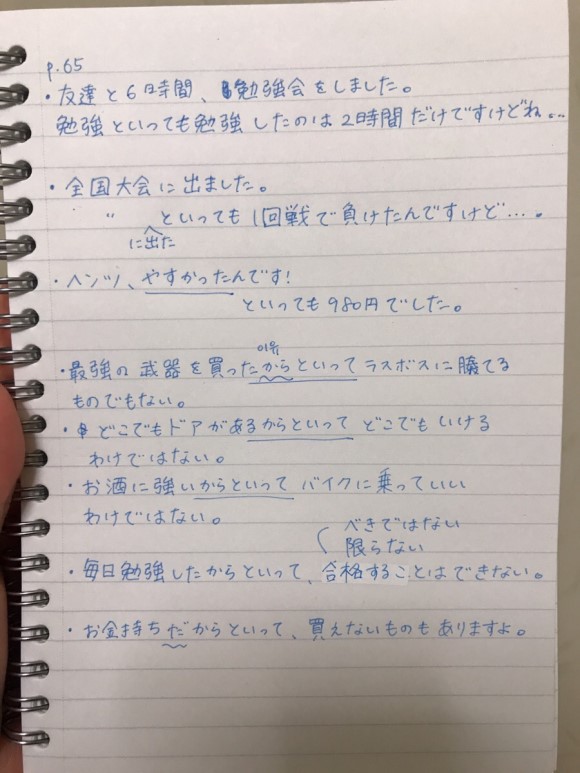 p.65
・友達と6時間、勉強会をしました。
勉強といっても勉強したのは2時間だけですけどね…
・全国大会に出ました。
〃 といっても1回戦で負けたんですけど…。
に出た
・ヘンツ、やすかったんです!
といっても980円でした。
이유
・最強の武器を買ったからといってラスボスに勝てる
ものでもない。
・どこでもドアがあるからといってどこでもいける
わけではない。
・お酒に強いからといってバイクに乗っていい
わけではない。
べきではない
限らない
・毎日勉強したからといって、合格することはできない。
・お金持ちだからといって、買えないものもありますよ。